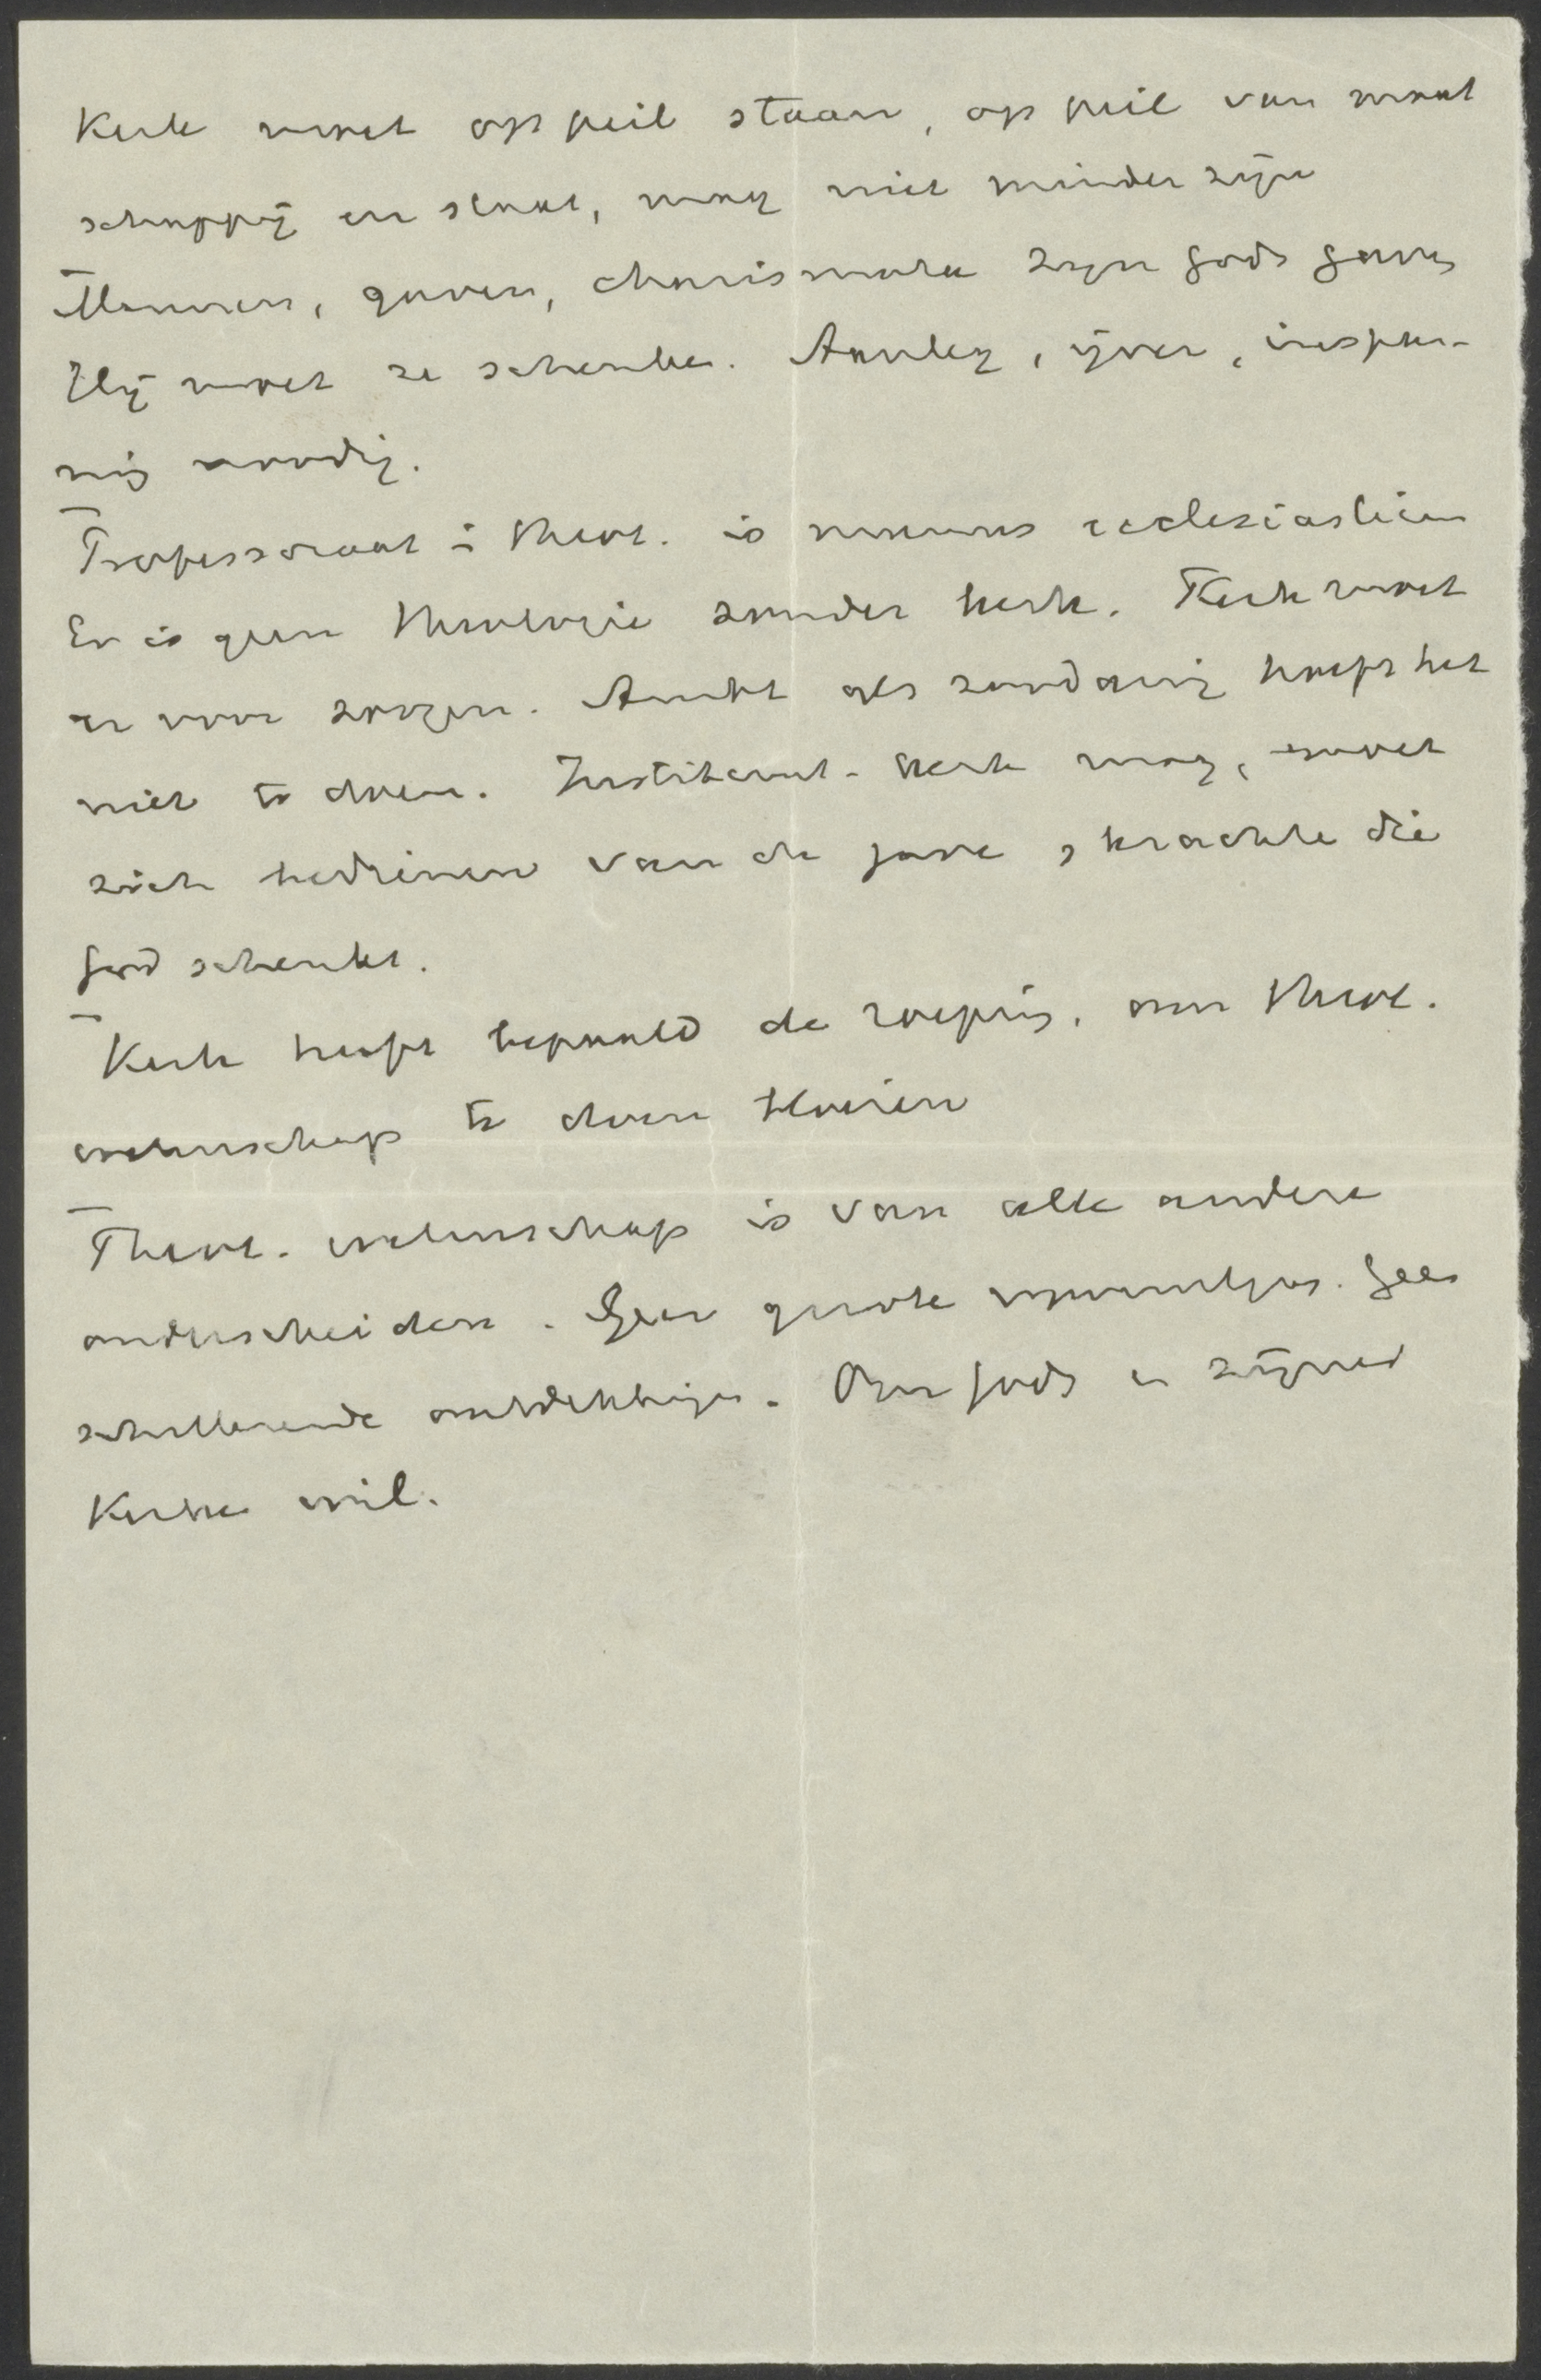 Kerk moet op peil staan, op peil van maat
schappij en staat, mag niet minder zijn
Mannen, gaven, charismata zijn Gods gaven
Hij moet ze schenken. Aanleg, ijver, inspan-
ning noodig.
Professoraat i Theol. is munus ecclesiasticum
Er is geen theologie zonder kerk. Kerk moet
er voor zorgen. Ambt als zoodanig heeft het
niet te doen. Instituut-kerk mag, moet
zich bedienen van de gave, krachten die
God schenkt.
Kerk heeft bepaald de roeping, om theol.
wetenschap te doen bloeien
Theol. wetenschap is van alle andere
onderscheiden. Geen groote Geen
schitterende ontdekkingen. Om Gods en zijner
Kerke wil.